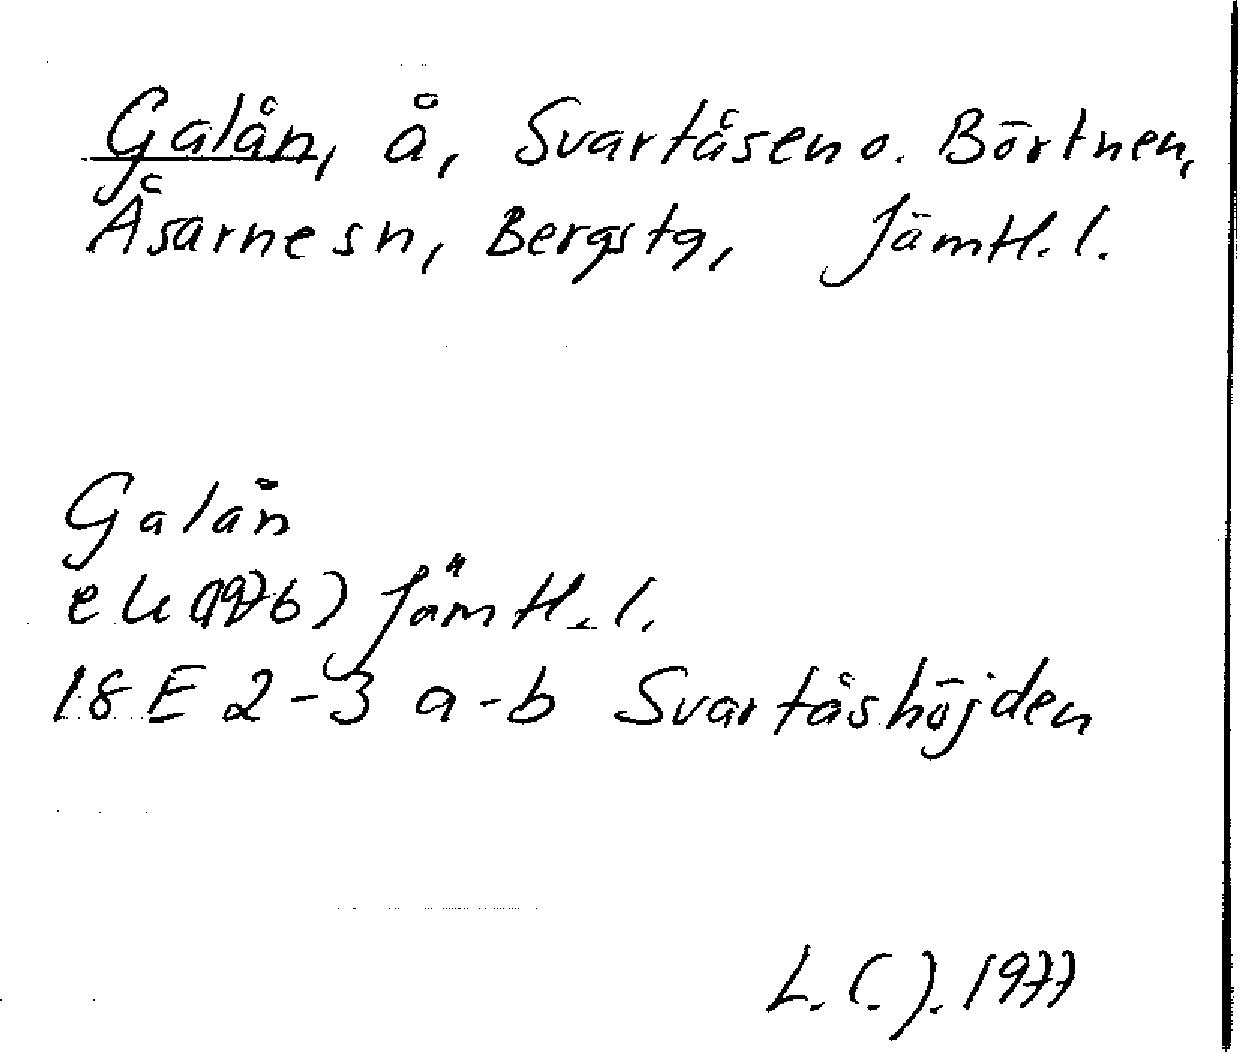 Galån, å, Svartåsen o. Börtnen,
Åsarne sn, Bergs tg, Jämtl. l.
Galån
ek (1976) Jämtl. l.
18 E 2-3 a-b Svartåshöjden
L.C.J. 1977